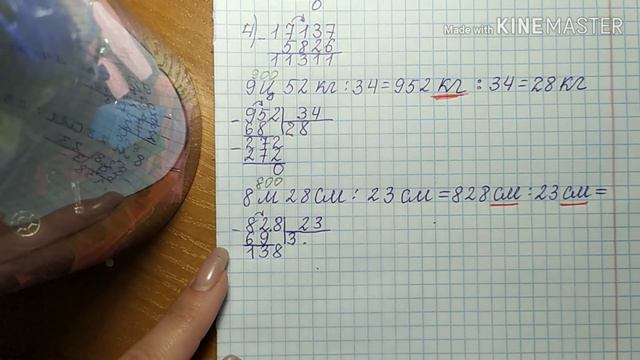 0
Made with KINEMASTER
4) - 17137
5826
11311
900
9ц 52 кг : 34 = 952 кг : 34 = 28 кг
- 952 | 34
68 | 28
- 272
272
0
800
8 м 28 см : 23 см = 828 см : 23 см =
- 828 | 23
69 | 3 .
138